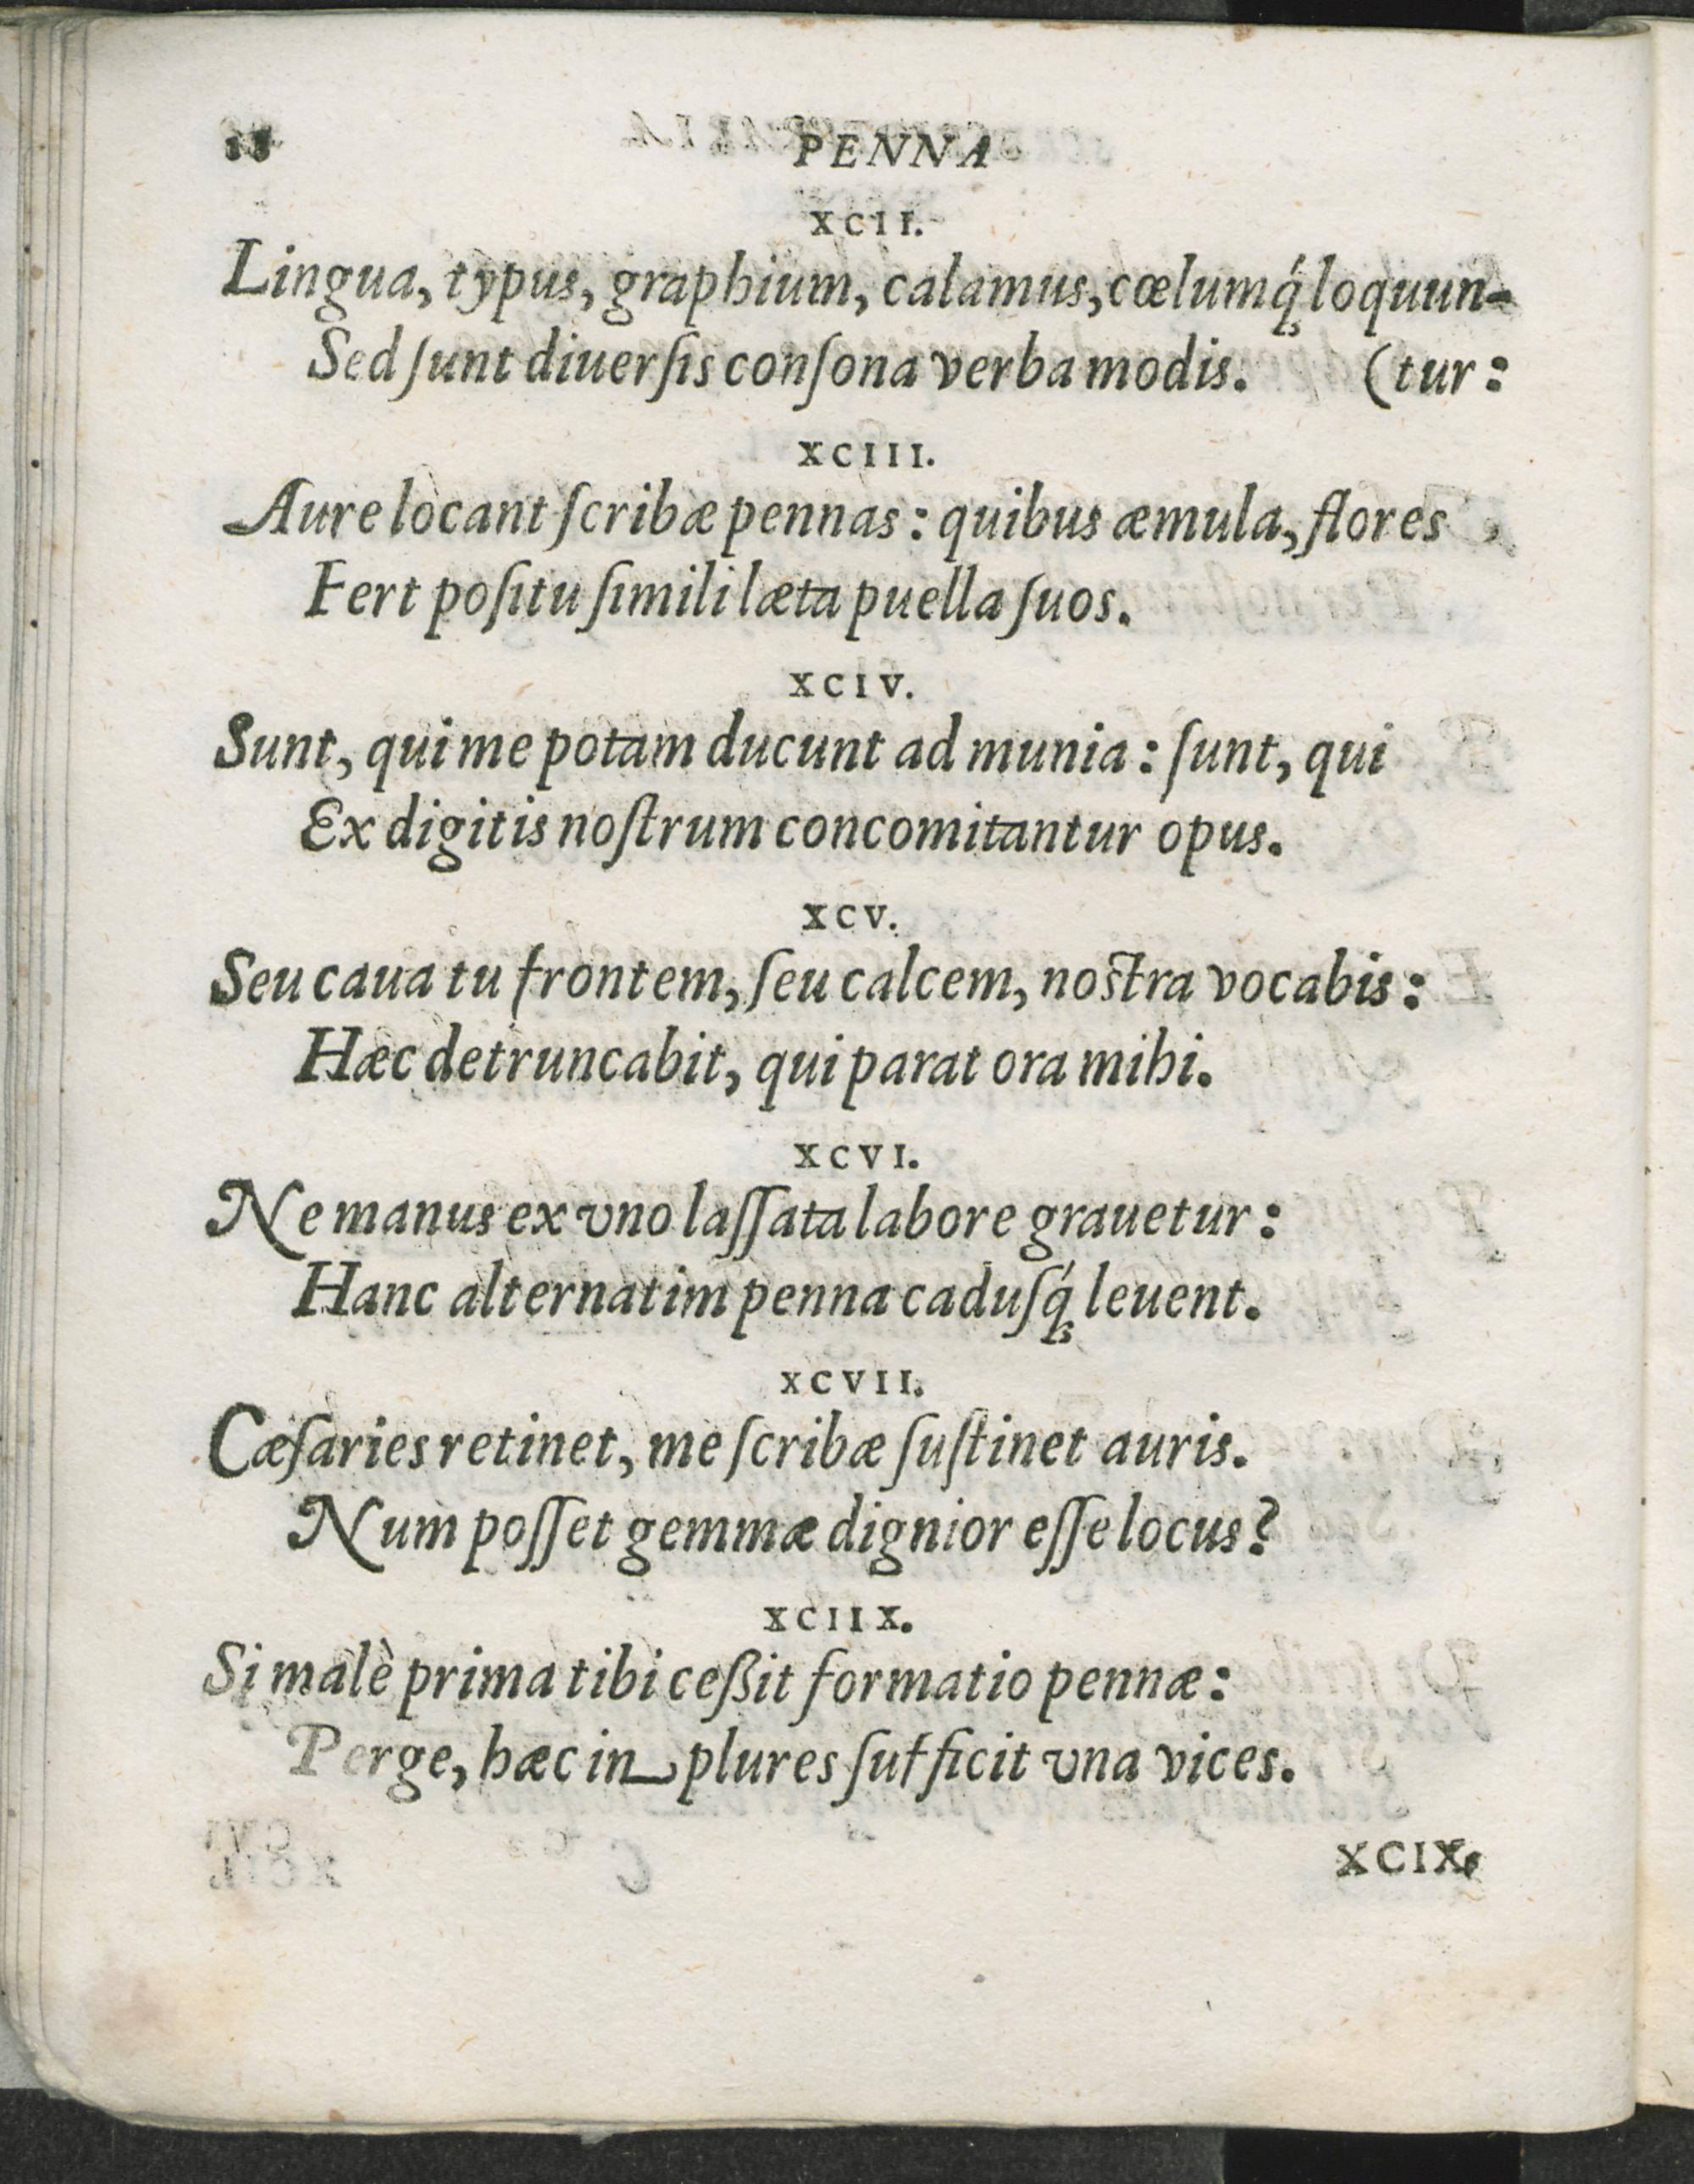 PENNA
XCII.
Lingua, typus, graphium, calamus, cœlumq́; loquun-
Sed ſunt diuerſis conſona verba modis. (tur:
XCIII.
Aure locant ſcribæ pennas: quibus æmula, flores
Fert poſitu ſimili læta puella ſuos.
XCIV.
Sunt, qui me potam ducunt ad munia: ſunt, qui
Ex digitis noſtrum concomitantur opus.
XCV.
Seu caua tu frontem, ſeu calcem, noſtra vocabis:
Hæc detruncabit, qui parat ora mihi.
XCVI.
Ne manus ex vno laſſata labore grauetur:
Hanc alternatim penna caduſq́; leuent.
XCVII.
Cæſaries retinet, me ſcribæ ſuſtinet auris.
Num poſſet gemmæ dignior eſſe locus?
XCIIX.
Si malè prima tibi ceßit formatio pennæ:
Perge, hæc in plures ſufficit vna vices.
XCIX.